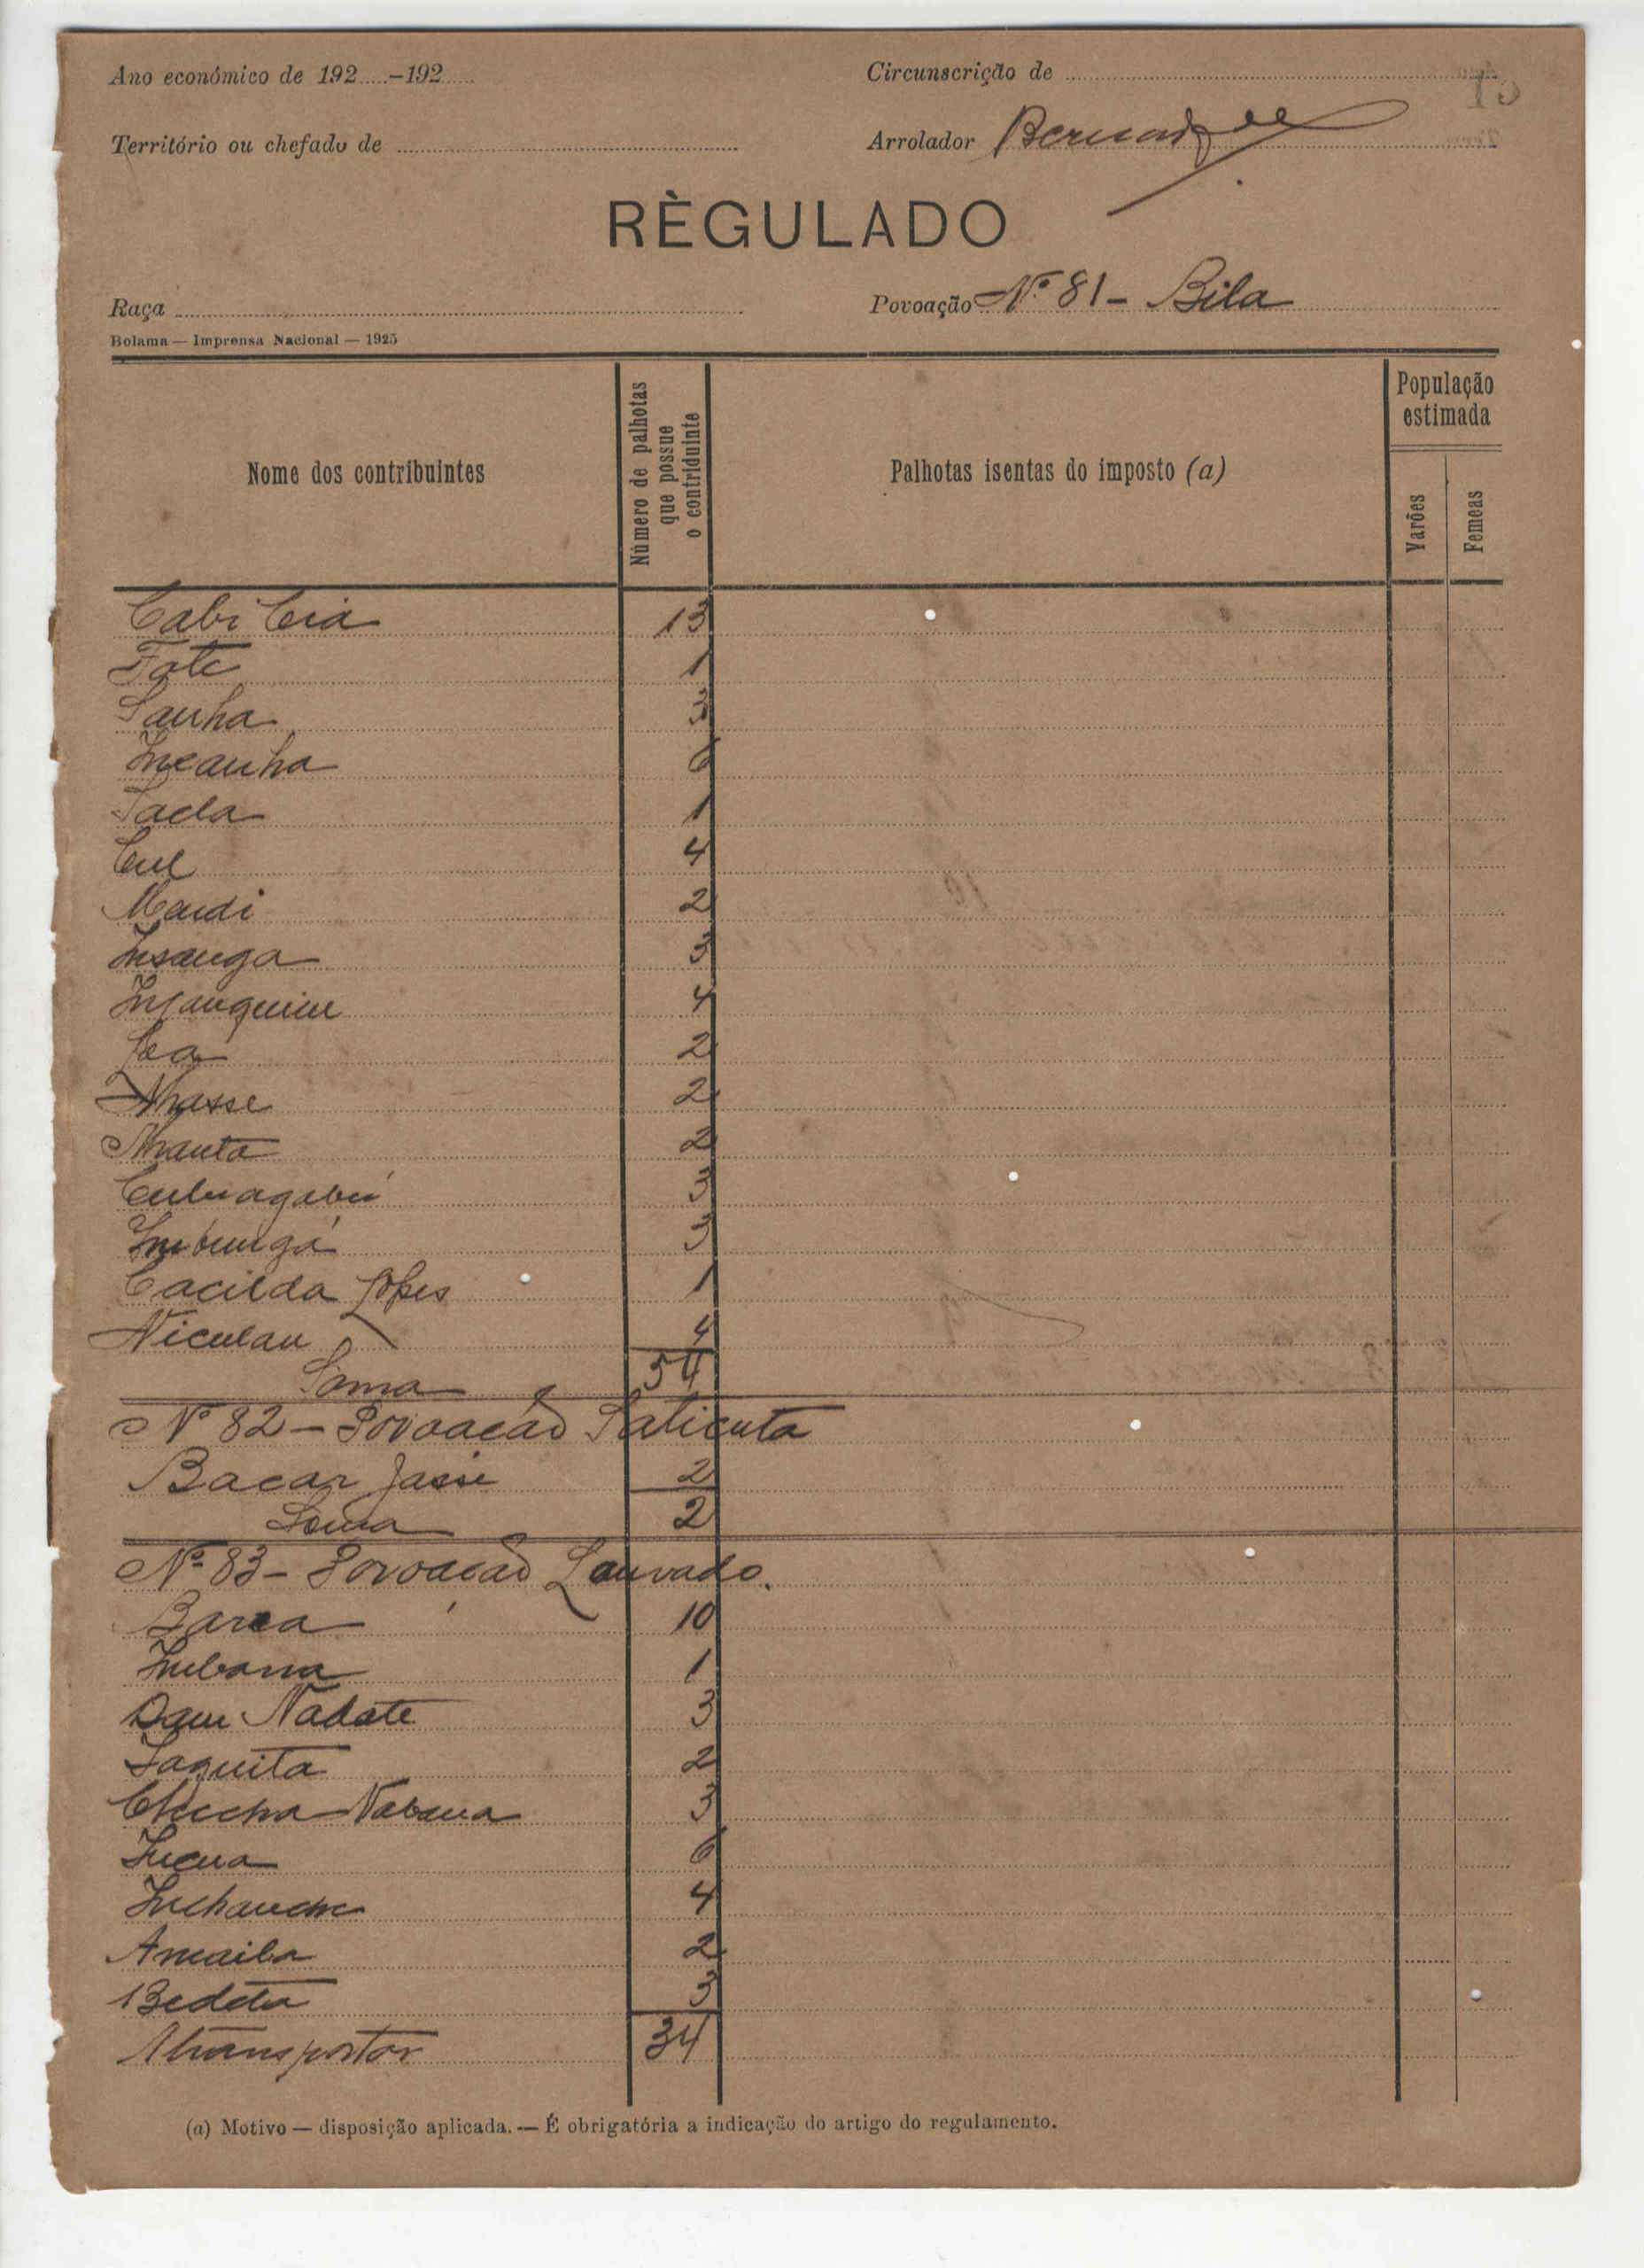 Ano económico de 192.....-192.....
Circunscrição de
Território ou chefado de
Arrolador
RÈGULADO
Raça
Povoação Nº 81 - Bila
Bolama — Imprensa Nacional — 1925
Nome dos contribuintes
Número de palhotas que possue o contriduinte
Palhotas isentas do imposto (a)
População estimada
Varões
Femeas
Cabi Ceia 13
Fote 1
Sanha 3
Incanha 6
Sada 1
Cul 4
Maudi 2
Insanga 3
Injanquim 4
Sea 2
Nhasse 2
Nhanta 2
3
Imbungá 3
Cacilda Lopes 1
Niculau 4
Soma 54
Nº 82 - Povoacão Saticuta
Bacar Jassi 2
Soma 2
Nº 83 - Povoacão Louvado.
Barca 10
Imbana 1
Nadate 3
Saquita 2
Nabana 3
Incua 6
Inchanche 4
Amaila 2
Bedeta 3
Atransportar 34
(a) Motivo — disposição aplicada. — É obrigatória a indicação do artigo do regulamento.